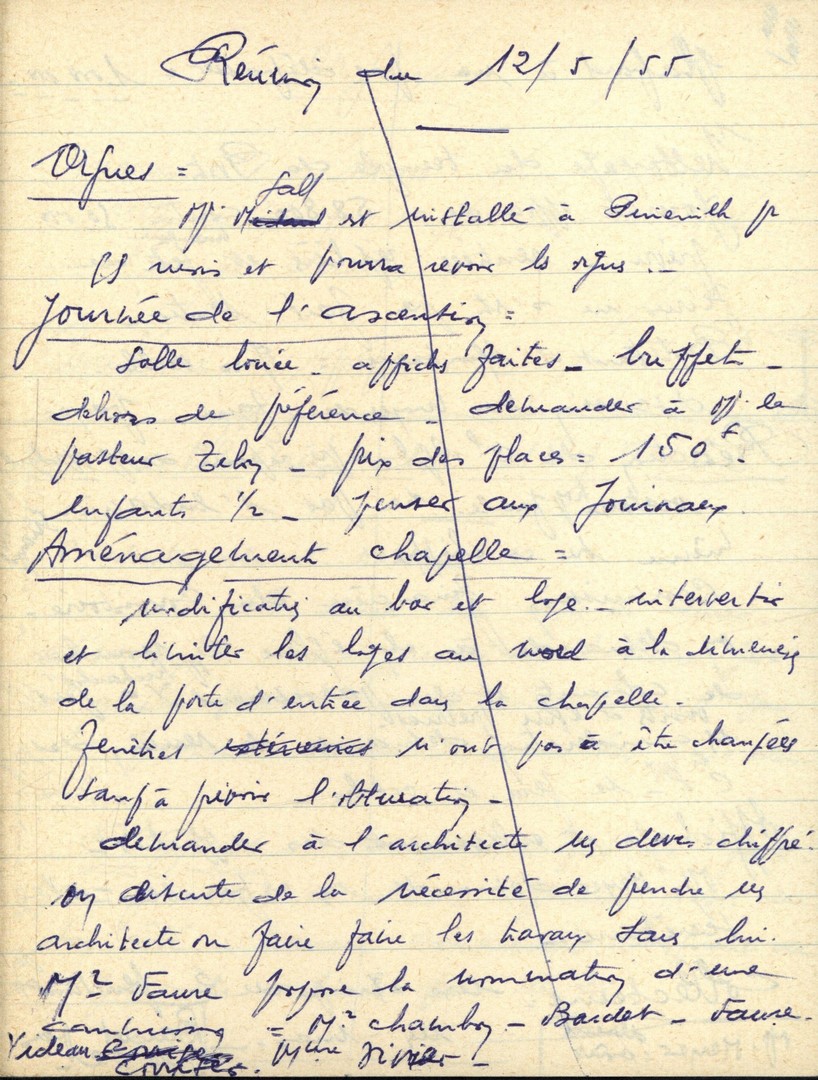 Réunion du 12/5/55
Orgues =
Gall
Mr est installé à p
mois et pourra revoir les orgues. _
Journée de l'ascention =
Salle louée _ affiches faites _ buffet _
dehors de préférence _ demander à Mr le
pasteur _ prix des places = 150f.
enfants 1/2 _ penser aux Journaux.
Aménagement chapelle =
modification au bar et loge. _ intervertir
et limiter les loges au nord à la dimension
de la porte d'entrée dans la chapelle.
Fenêtres n'ont pas à être changées
sauf à prévoir l'obturation _
demander à l'architecte un devis chiffré.
on discute de la nécessité de prendre un
architecte ou faire faire les travaux sans lui.
Mr Faure propose la nomination d'une
commission = Mr Chambon _ Bardet _ Faure.
Videau Mme _